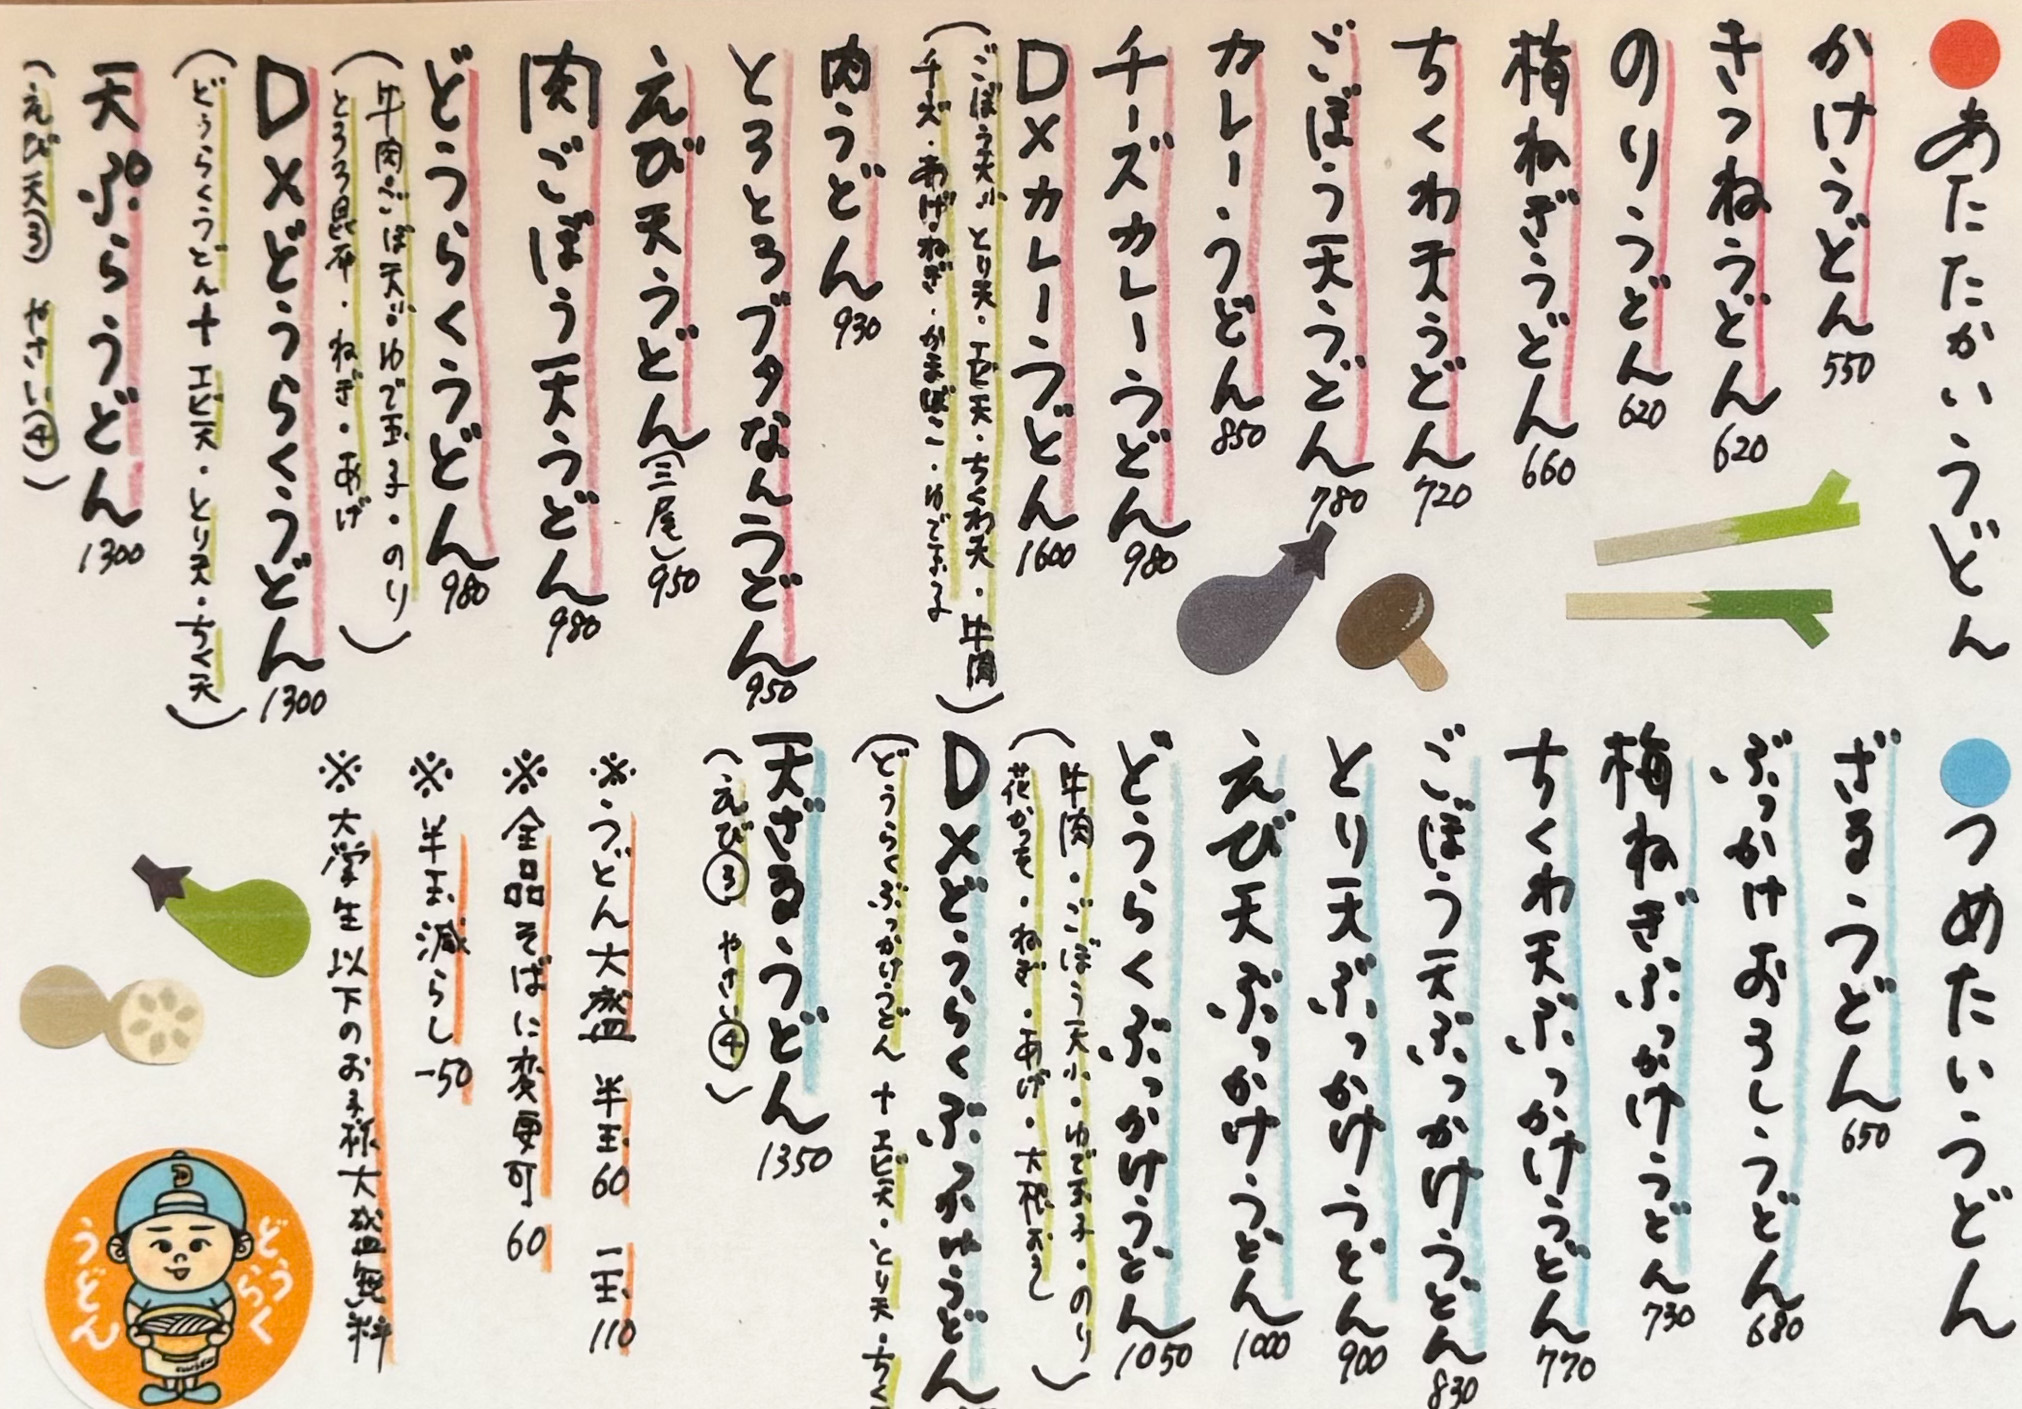 あたたかいうどん
かけうどん 550
きつねうどん 620
のりうどん 620
梅ねぎうどん 660
ちくわ天うどん 720
ごぼう天うどん 780
カレーうどん 850
チーズカレーうどん 980
DXカレーうどん 1600
(ごぼう天小・とり天・エビ天・ちくわ天・牛肉
チーズ・あげ・ねぎ・かまぼこ・ゆで玉子)
肉うどん 930
とろとろブタなんうどん 950
えび天うどん(三尾) 950
肉ごぼう天うどん 980
どうらくうどん 980
(牛肉・ごぼ天小・ゆで玉子・のり
とろろ昆布・ねぎ・あげ)
DXどうらくうどん 1300
(どうらくうどん+エビ天・とり天・ちく天)
天ぷらうどん 1300
(えび天③ やさい④)
つめたいうどん
ざるうどん 650
ぶっかけおろしうどん 680
梅ねぎぶっかけうどん 730
ちくわ天ぶっかけうどん 770
ごぼう天ぶっかけうどん 830
とり天ぶっかけうどん 900
えび天ぶっかけうどん 1000
どうらくぶっかけうどん 1050
(牛肉・ごぼう天小・ゆで玉子・のり
花かつを・ねぎ・あげ・大根おろし)
DXどうらくぶっかけうどん
(どうらくぶっかけうどん+エビ天・とり天・ちく
天ざるうどん 1350
(えび③ やさい④)
※うどん大盛 半玉60 一玉110
※全品そばに変更可 60
※半玉減らし -50
※大学生以下のお子様大盛無料
どうらく
うどん
D